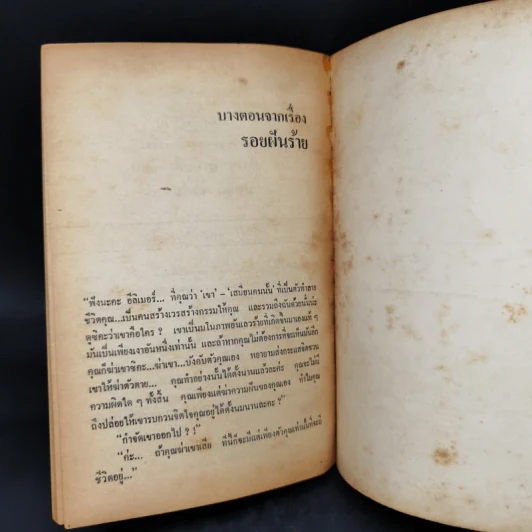 บางตอนจากเรื่อง
รอยฝันร้าย
“ฟังนะคะ อีลิเมอร์... ที่คุณว่า ‘เขา’ – ‘เสมือนคนนั้น’ ที่เป็นตัวทำลาย
ชีวิตคุณ...เป็นคนสร้างเวรสร้างกรรมให้คุณ และรวมถึงฉันด้วยนั้นน่ะ
ดูซิคะว่าเขาคือใคร ? เขาเป็นมโนภาพอันเลวร้ายที่เกิดขึ้นมาเองแท้ ๆ
มันเป็นเพียงเงาอันหนึ่งเท่านั้น และถ้าหากคุณไม่ต้องการที่จะเห็นมันอีก
คุณก็ฆ่าเขาซิคะ...ฆ่าเขา...บังคับตัวคุณเอง พยายามส่งกระแสจิตชวน
เขาให้ฆ่าตัวตาย... คุณทำอย่างนั้นได้ตั้งนานแล้วละค่ะ คุณจะไม่มี
ความผิดใด ๆ ทั้งสิ้น คุณเพียงแต่ฆ่าความฝันของคุณเอง ทำไมคุณ
ถึงปล่อยให้เขารบกวนจิตใจคุณอยู่ได้ตั้งนมนานละคะ ?”
“กำจัดเขาออกไป ? !”
“ค่ะ... ถ้าคุณฆ่าเขาเสีย ทีนี้ก็จะมีแต่เพียงตัวคุณเท่านั้นที่จะมี
ชีวิตอยู่...”